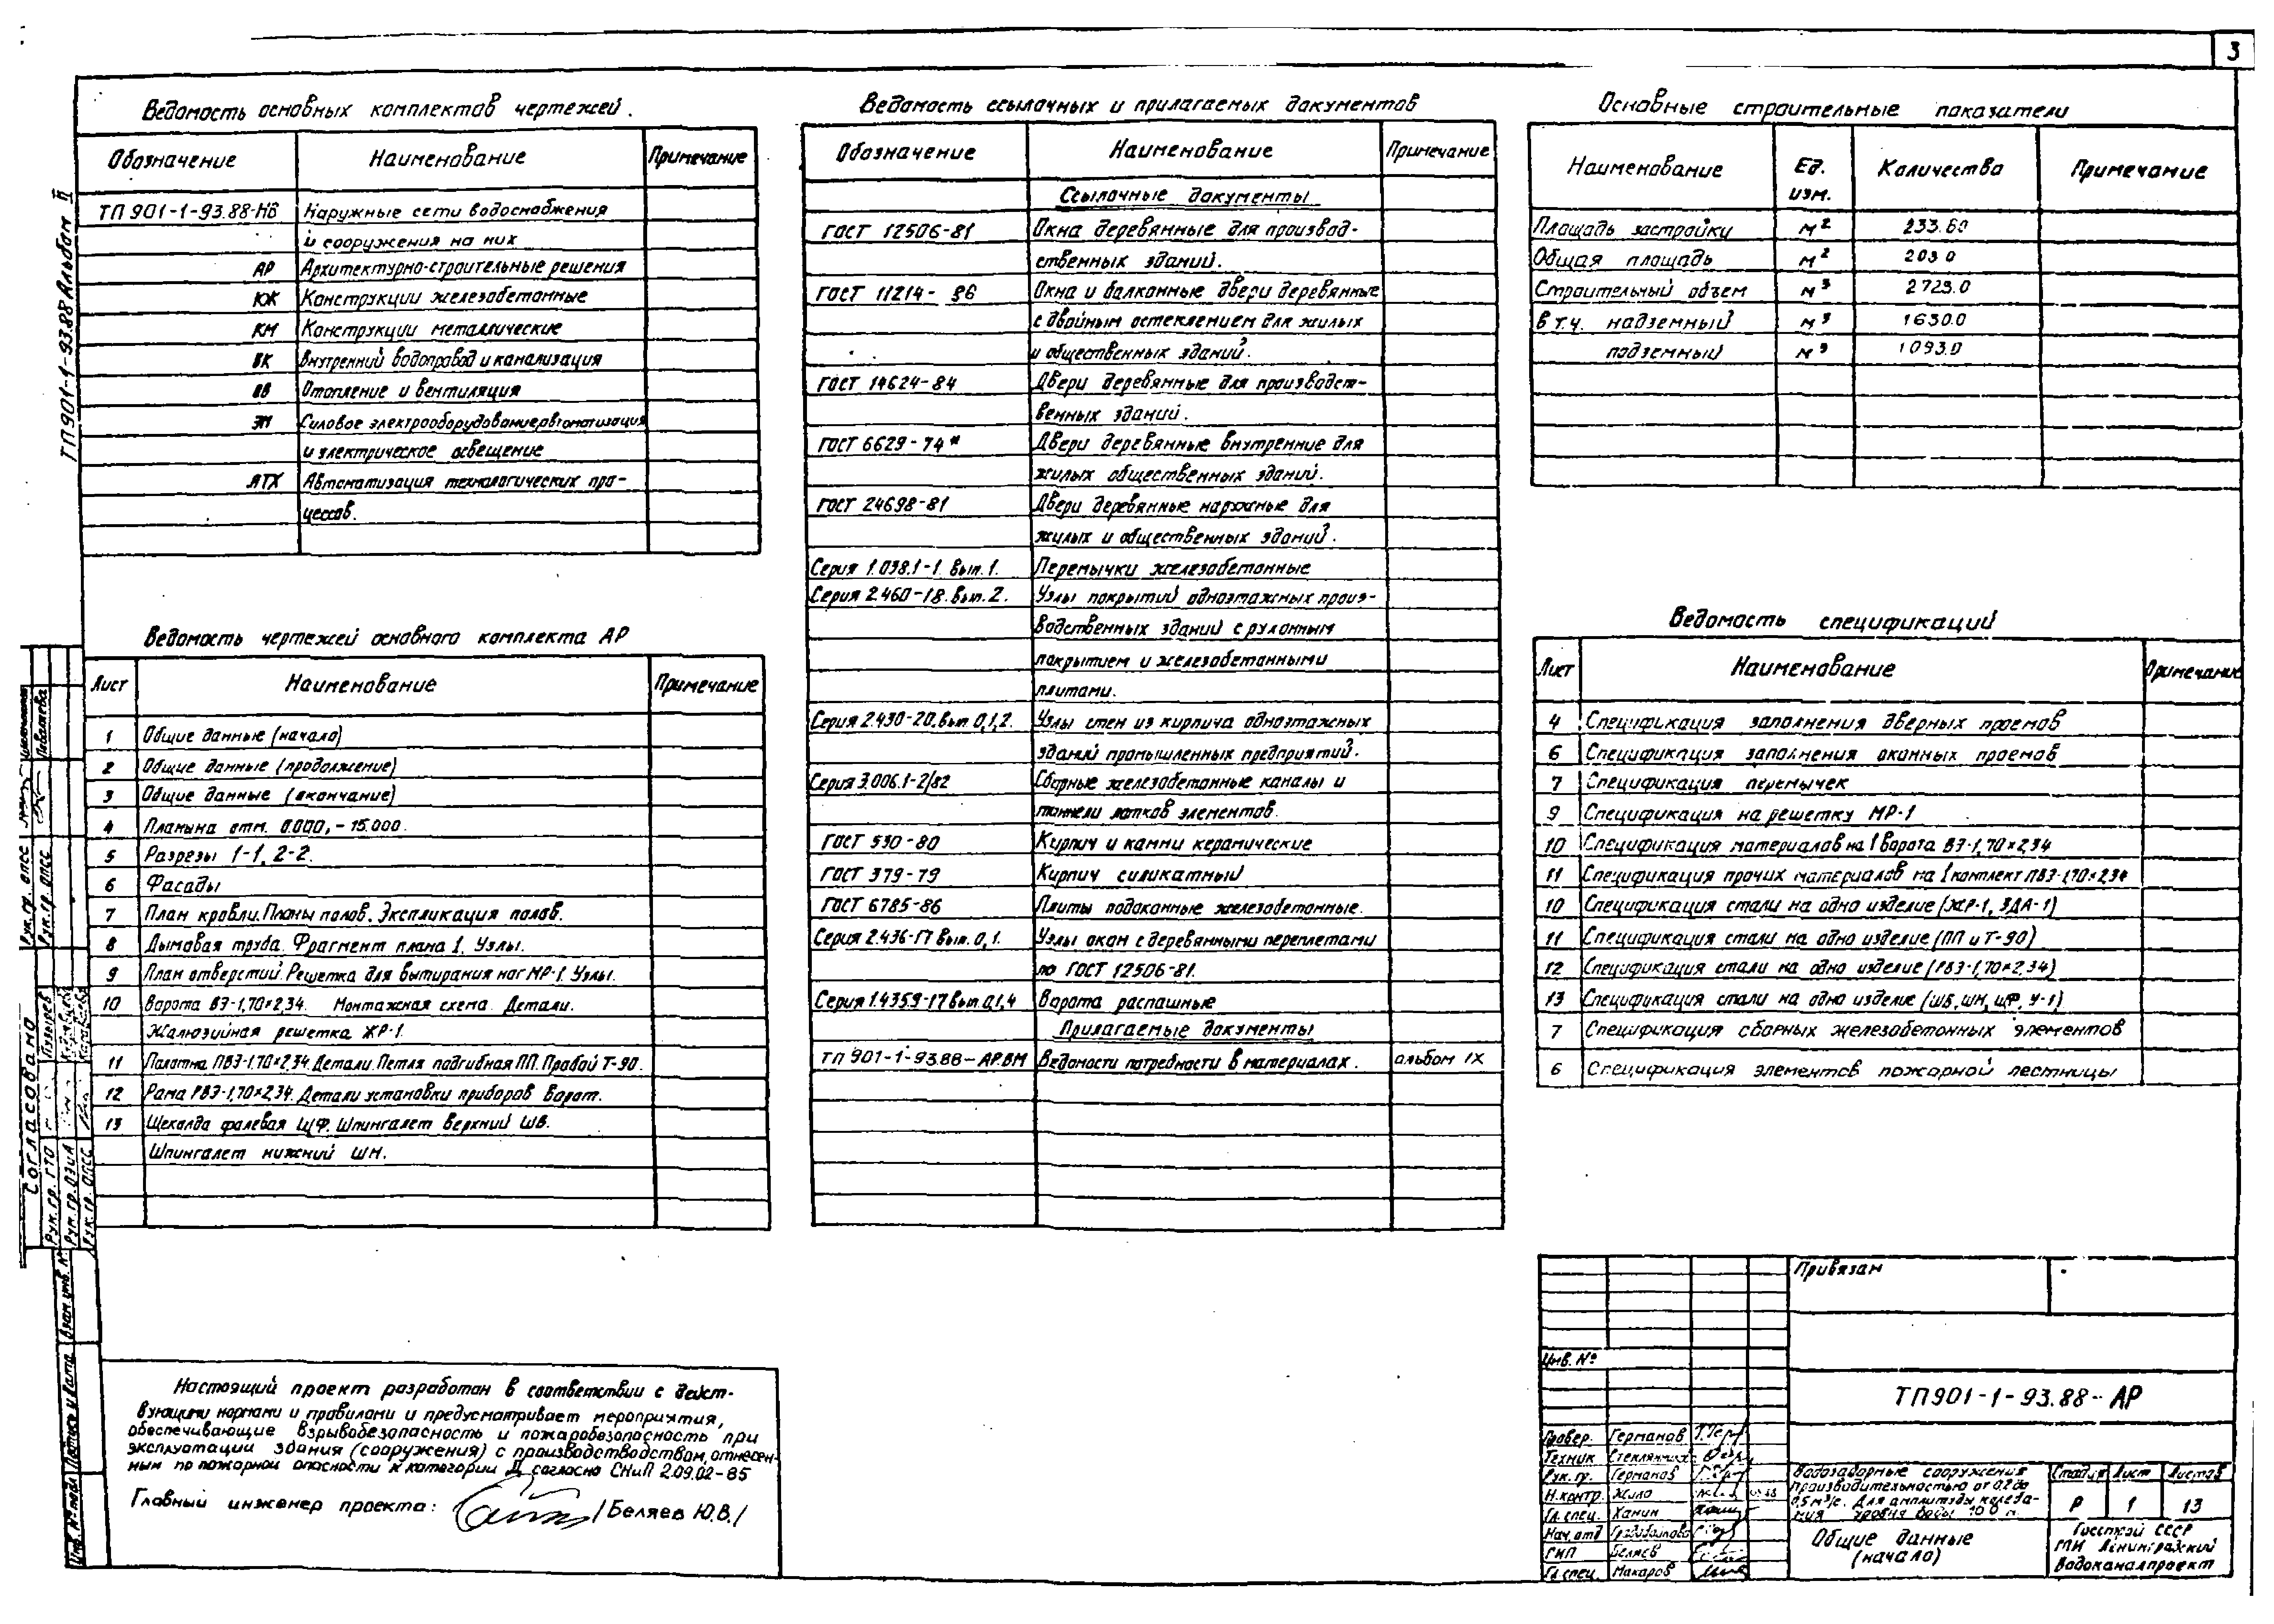 3
Ведомость основных комплектов чертежей.
Обозначение Наименование Примечание
ТП 901-1-93.88-НВ Наружные сети водоснабжения
и сооружения на них
АР Архитектурно-строительные решения
КЖ Конструкции железобетонные
КМ Конструкции металлические
ВК Внутренний водопровод и канализация
ОВ Отопление и вентиляция
ЭМ Силовое электрооборудование, автоматизация
и электрическое освещение
АТХ Автоматизация технологических про-
цессов.
Ведомость чертежей основного комплекта АР
Лист Наименование Примечание
1 Общие данные (начало)
2 Общие данные (продолжение)
3 Общие данные (окончание)
4 Планы на отм. 0.000, -15.000.
5 Разрезы 1-1, 2-2.
6 Фасады
7 План кровли. Планы полов. Экспликация полов.
8 Дымовая труба. Фрагмент плана 1. Узлы.
9 План отверстий. Решетка для вытирания ног МР-1. Узлы.
10 Ворота ВЭ-1,70×2,34. Монтажная схема. Детали.
Жалюзийная решетка ЖР-1.
11 Полотна ПВЭ-1,70×2,34. Детали. Петля подгибная ПП. Пробой Т-90.
12 Рама РВЭ-1,70×2,34. Детали установки приборов ворот.
13 Щеколда фалевая ЩФ. Шпингалет верхний ШВ.
Шпингалет нижний ШН.
Настоящий проект разработан в соответствии с дейст-
вующими нормами и правилами и предусматривает мероприятия,
обеспечивающие взрывобезопасность и пожаробезопасность при
эксплуатации здания (сооружения) с производстводством, отнесен-
ным по пожарной опасности к категории Д согласно СНиП 2.09.02-85
Главный инженер проекта: /Беляев Ю.В./
Ведомость ссылочных и прилагаемых документов
Обозначение Наименование Примечание
Ссылочные документы
ГОСТ 12506-81 Окна деревянные для производ-
ственных зданий.
ГОСТ 11214-86 Окна и балконные двери деревянные
с двойным остеклением для жилых
и общественных зданий.
ГОСТ 14624-84 Двери деревянные для производст-
венных зданий.
ГОСТ 6629-74* Двери деревянные внутренние для
жилых общественных зданий.
ГОСТ 24698-81 Двери деревянные наружные для
жилых и общественных зданий.
Серия 1.038.1-1. вып. 1. Перемычки железобетонные
Серия 2.460-18. вып. 2. Узлы покрытий одноэтажных произ-
водственных зданий с рулонным
покрытием и железобетонными
плитами.
Серия 2.430-20. вып. 0,1,2. Узлы стен из кирпича одноэтажных
зданий промышленных предприятий.
Серия 3.006.1-2/82 Сборные железобетонные каналы и
тоннели лотков элементов.
ГОСТ 530-80 Кирпич и камни керамические
ГОСТ 379-79 Кирпич силикатный
ГОСТ 6785-86 Плиты подоконные железобетонные.
Серия 2.436-17 вып. 0,1. Узлы окон с деревянными переплетами
по ГОСТ 12506-81.
Серия 1.435.9-17 вып. 0,1,4 Ворота распашные
Прилагаемые документы
ТП 901-1-93.88-АР.ВМ Ведомости потребности в материалах. альбом IX
Основные строительные показатели
Наименование Ед. изм. Количество Примечание
Площадь застройки м² 233.60
Общая площадь м² 203.0
Строительный объем м³ 2723.0
в т.ч. надземный м³ 1630.0
подземный м³ 1093.0
Ведомость спецификаций
Лист Наименование Примечание
4 Спецификация заполнения дверных проемов
6 Спецификация заполнения оконных проемов
7 Спецификация перемычек
9 Спецификация на решетку МР-1
10 Спецификация материалов на 1 ворота ВЭ-1,70×2,34
11 Спецификация прочих материалов на 1 комплект ПВЭ-1,70×2,34
10 Спецификация стали на одно изделие (ЖР-1, ЗДА-1)
11 Спецификация стали на одно изделие (ПП и Т-90)
12 Спецификация стали на одно изделие (РВЭ-1,70×2,34)
13 Спецификация стали на одно изделие (ШВ, ШН, ЩФ, У-1)
7 Спецификация сборных железобетонных элементов
6 Спецификация элементов пожарной лестницы
Привязан
Инв. №
ТП901-1-93.88-АР
Провер. Германов
Техник
Рук. гр. Германов
Н.контр. Жило
Гл. спец. Ханин
Нач. отд
ГИП Беляев
Гл. спец. Макаров
Водозаборные сооружения
производительностью от 0,2 до
0,5 м³/с. Для амплитуды колеба-
ния уровня воды 10.0 м.
Стадия Лист Листов
Р 1 13
Общие данные
(начало)
Госстрой СССР
ГПИ Ленинградский
Водоканалпроект
ТП901-1-93.88 Альбом II
Согласовано
Рук. гр. ОПСС
Рук. гр. ОПСС
Рук. гр. ГТО
Рук. гр. ОЭиА
Рук. гр. ОПСС
Взам. инв. №
Подпись и дата
Инв. № подл